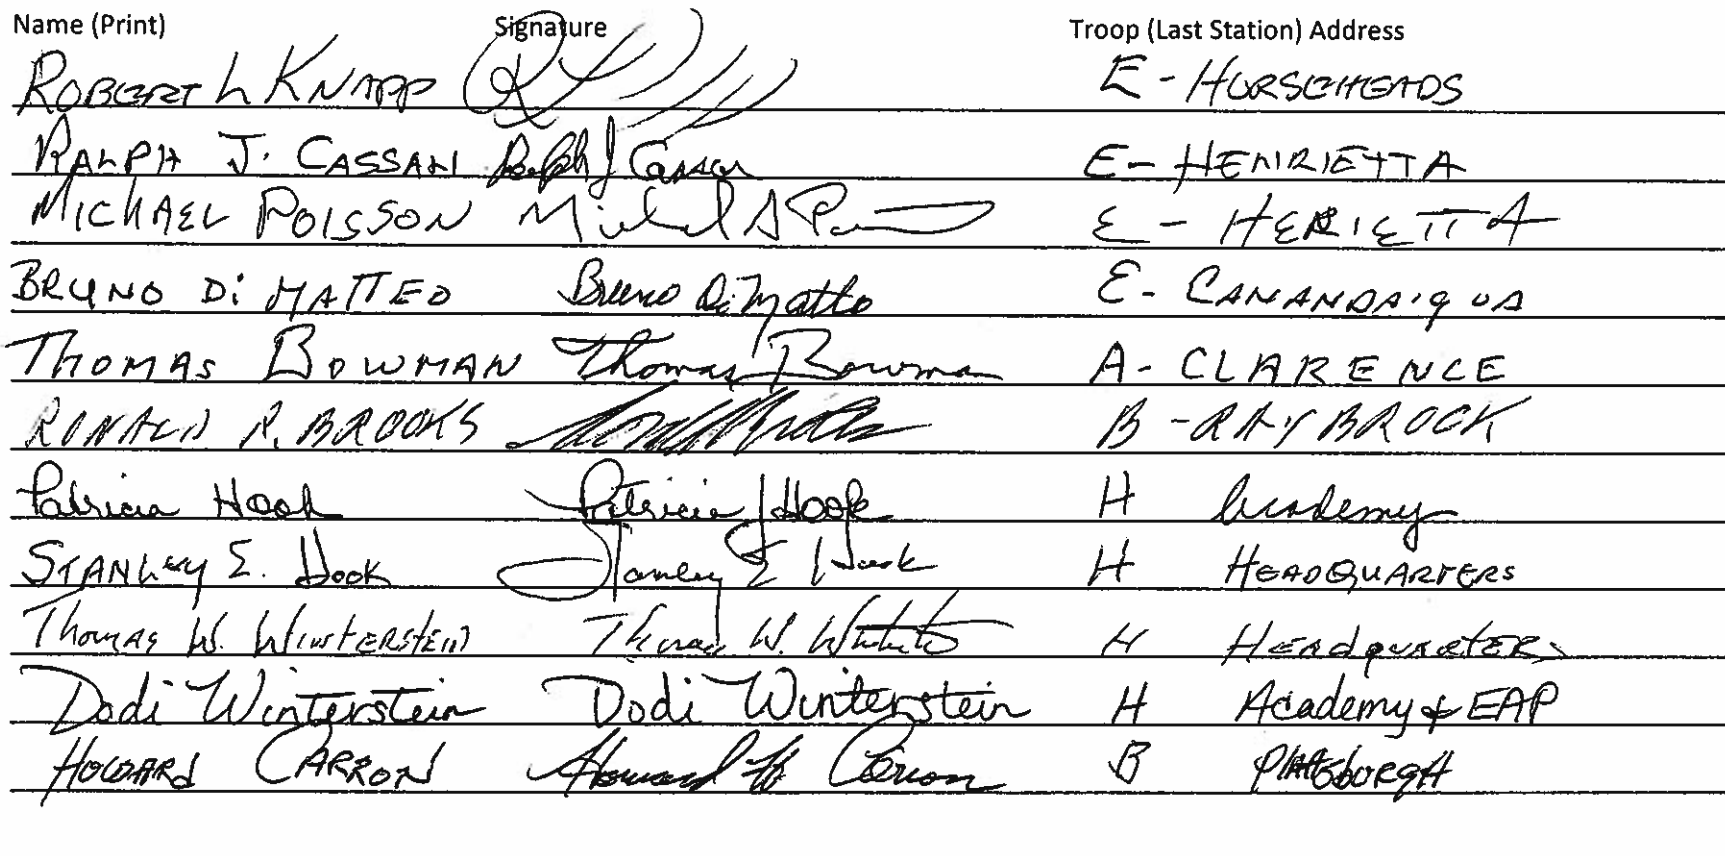 Name (Print) Signature Troop (Last Station) Address
ROBERT L KNAPP E - HORSEHEADS
RALPH J. CASSAN Ralph J Cassan E - HENRIETTA
MICHAEL POISSON Michael A E - HERIETTA
BRUNO Di MATTEO Bruno DiMatteo E - CANANDAiguA
THOMAS BOWMAN Thomas Bowman A - CLARENCE
RONALD R. BROOKS B - RAYBROOK
Patricia Hook Patricia J Hook H Academy
STANLEY E. Hook Stanley E Hook H HEADQUARTERS
Thomas W. WINTERSTEIN Thomas W. H HEADquarters
Dodi Winterstein Dodi Winterstein H Academy & EAP
HOWARD CARRON Howard W Carron B PlattsburgH